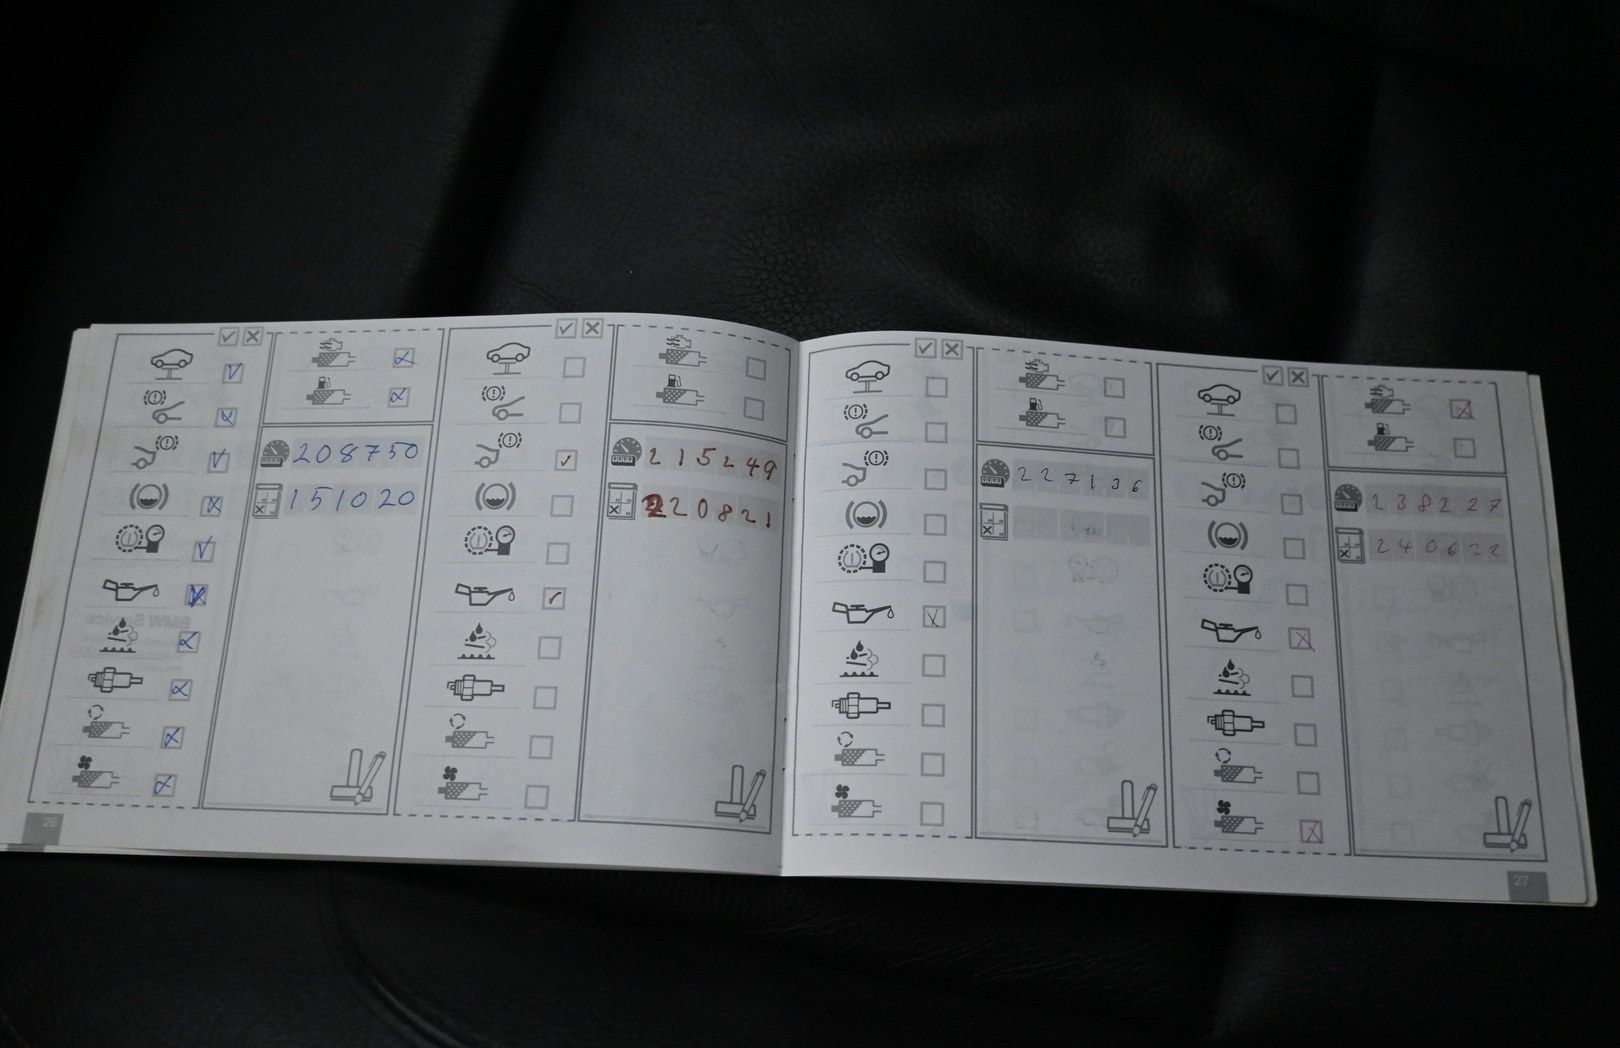 208750
151020
26
215249
220821
227136
238227
240622
27